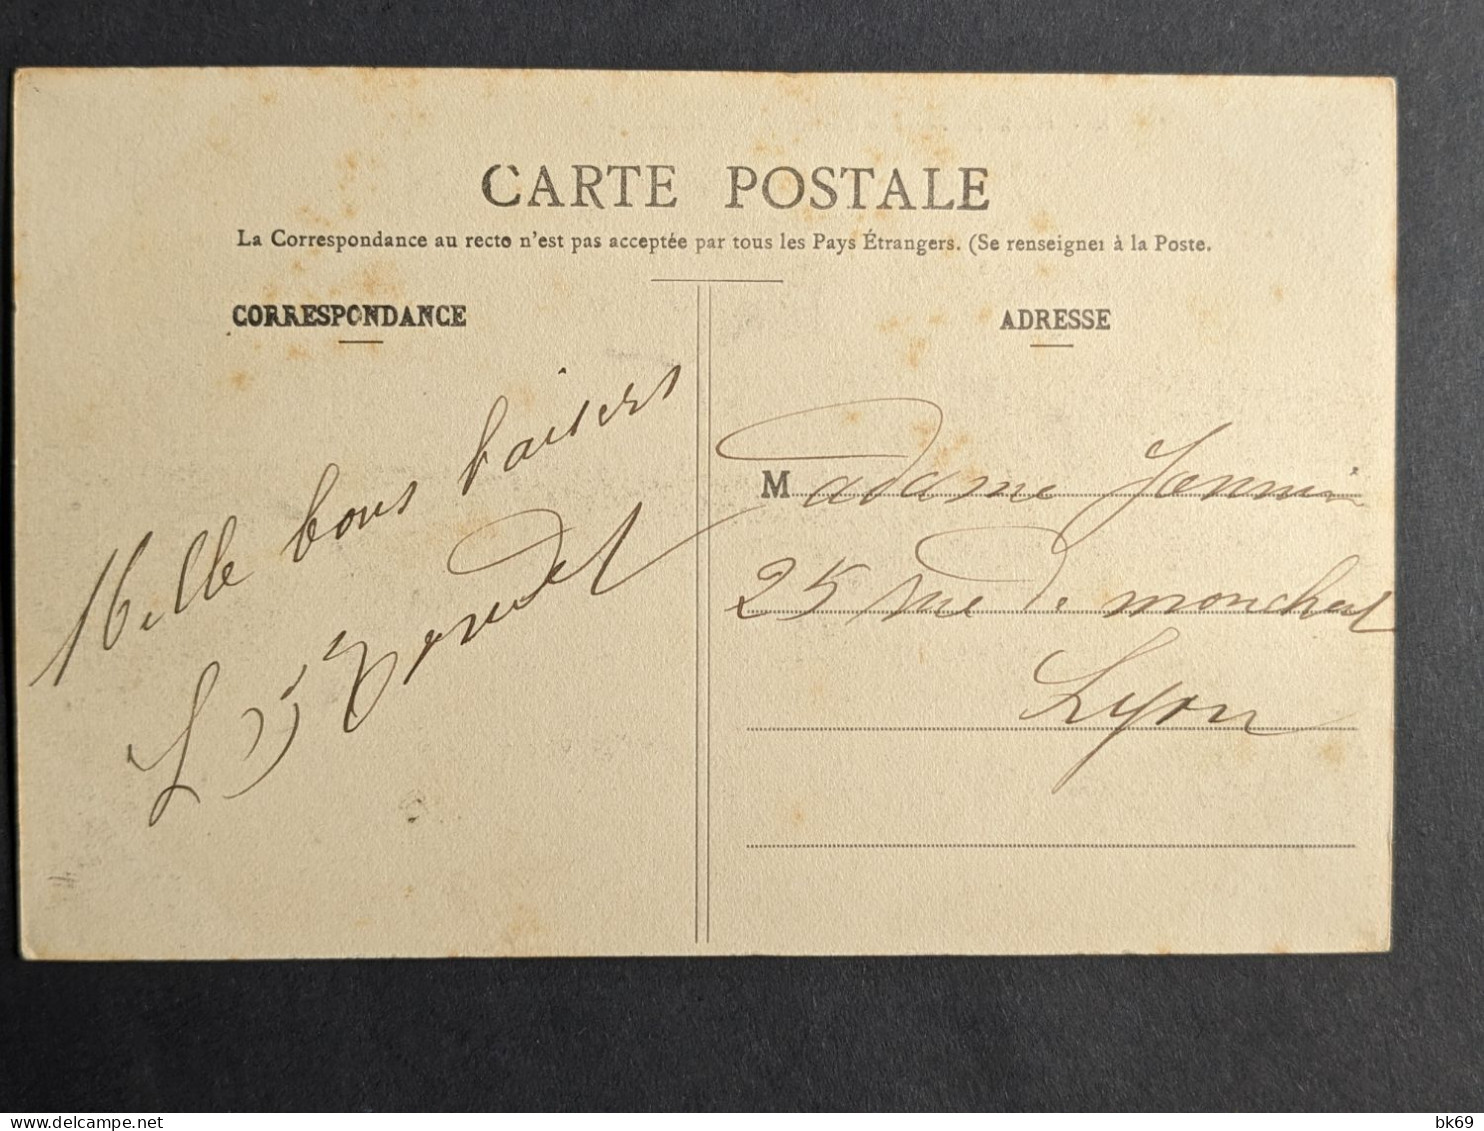 CARTE POSTALE
La Correspondance au recto n'est pas acceptée par tous les Pays Étrangers. (Se renseigner à la Poste.
CORRESPONDANCE
Mille bons baisers
ADRESSE
Madame Jannin
25 rue de monchat
Lyon
delcampe.net
bk69